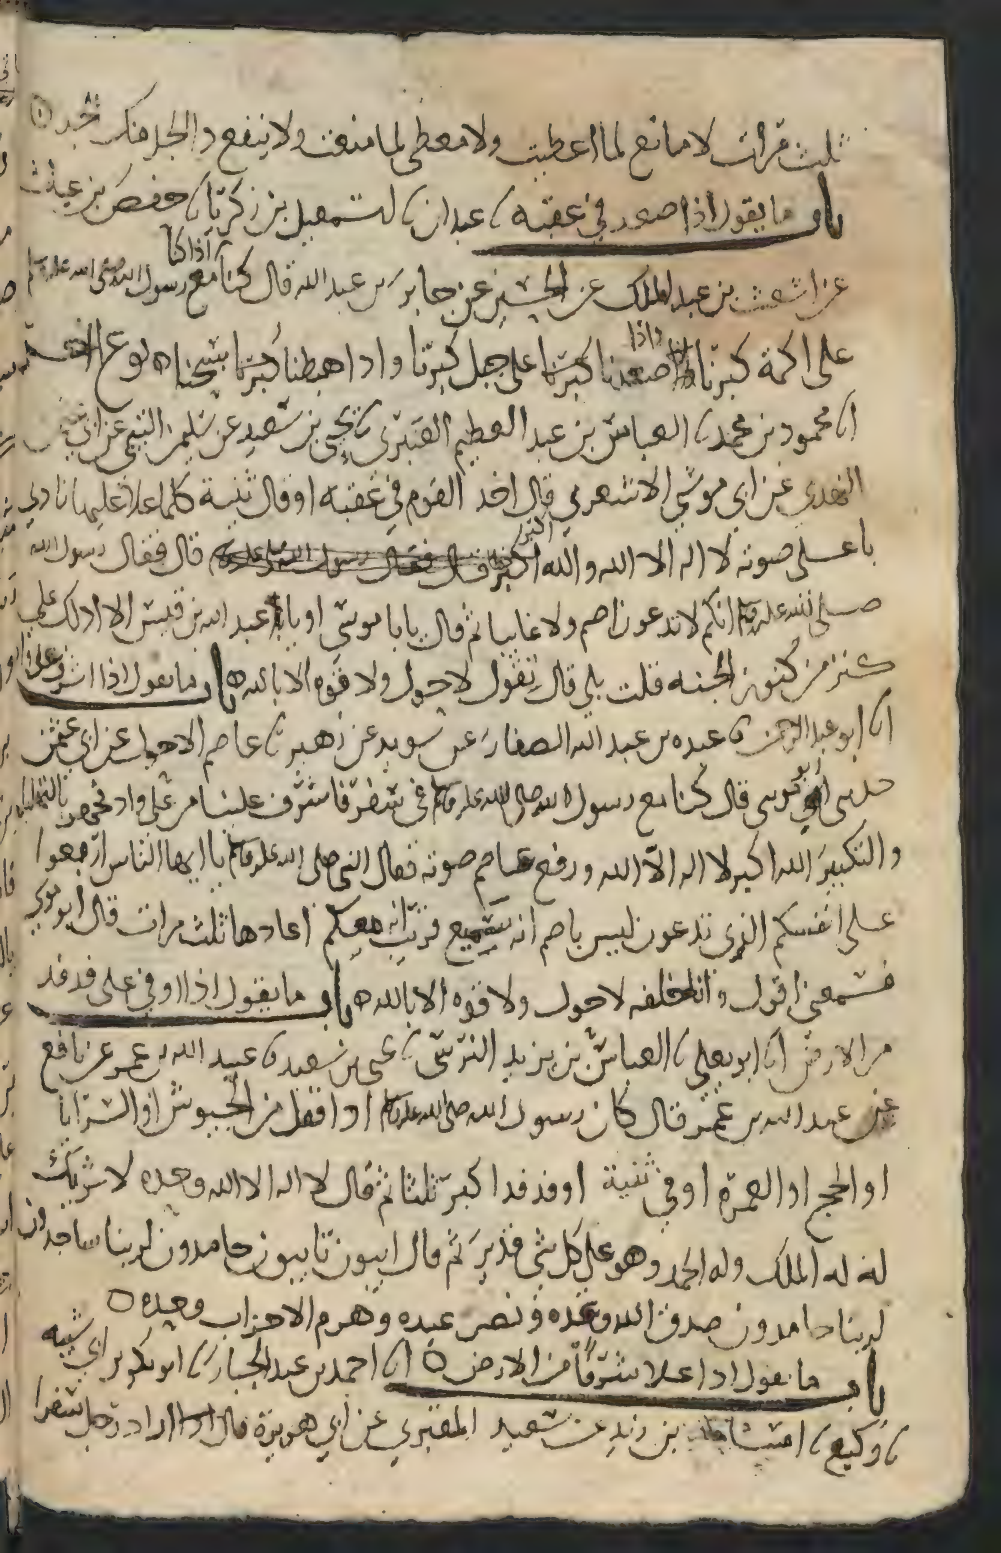 ثلث مرات لا مانع لما اعطيت ولا معطي لما منعت ولا ينفع ذا الجد منك الجد
باب ما يقول اذا صعد في عقبة نا عبدان نا اسمعيل بن زكريا نا حفص بن غياث
عن اشعث بن عبد الملك عن الحسن عن جابر بن عبد الله قال كنا مع رسول الله صلى الله عليه وسلم اذا كنا
على اكمة كبرنا واذا صعدنا على جبل كبرنا واذا هبطنا سبحنا ه نوع
انا محمود بن محمد نا العباس بن عبد العظيم العنبري نا يحيى بن سعيد عن سليمن التيمي عن ابي عثمن
النهدي عن ابي موسى الاشعري قال اخذ القوم في عقبة او قال ثنية كلما علا عليها نادى
باعلى صوته لا اله الا الله والله اكبر قال فقال رسول الله
صلى الله عليه وسلم انكم لا تدعون اصم ولا غايبا ثم قال يا با موسى او يا عبد الله بن قيس الا ادلك على
كنز من كنوز الجنه قلت بلى قال تقول لا حول ولا قوه الا بالله ه باب ما يقول اذا اشرف على واد
انا ابو عبد الرحمن نا عبده بن عبد الله الصفار عن سويد عن زهير نا عاصم الاحول عن ابي عثمن
حدثني ابو موسى قال كنا مع رسول الله صلى الله عليه وسلم في سفر فاشرف علينا من على واد بالتهليل
والتكبير الله اكبر لا اله الا الله ورفع عاصم صوته فقال النبي صلى الله عليه وسلم يا ايها الناس اربعوا
على انفسكم الذي تدعون ليس باصم انه سميع قريب انه معكم اعادها ثلث مرات قال ابو موسى
فسمعني اقول وانا خلفه لا حول ولا قوه الا بالله ه باب ما يقول اذا اوفى على فدفد
من الارض انا ابو يعلى نا العباس بن يزيد النرسي نا يحيى بن سعيد نا عبيد الله بن عمر عن نافع
عن عبد الله بن عمر قال كان رسول الله صلى الله عليه وسلم اذا قفل من الجيوش او السرايا
او الحج او العمرة اوفى ثنية او فدفدا كبر ثلثا ثم قال لا اله الا الله وحده لا شريك
له له الملك وله الحمد وهو على كل شي قدير ثم قال ايبون تايبون حامدون لربنا ساجدون
لربنا حامدون صدق الله وعده ونصر عبده وهزم الاحزاب وحده ه
باب ما يقول اذا علا شرفا من الارض ه انا احمد بن عبد الجبار نا ابو بكر بن ابي شيبه
نا وكيع نا اسامة بن زيد عن سعيد المقبري عن ابي هريرة قال اراد رجل سفرا